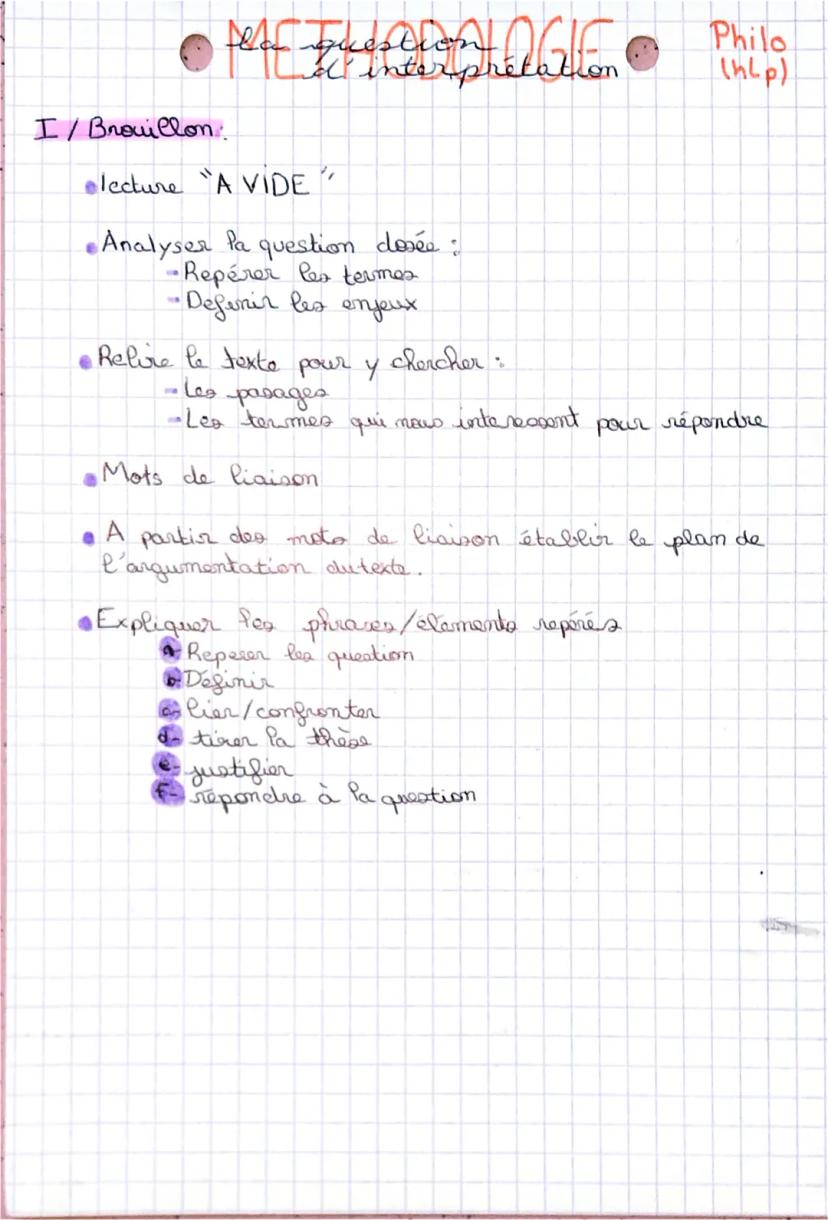 METHODOLOGIE
la question
d'interprétation
Philo
(hLp)
I / Brouillon:
• lecture "A VIDE"
• Analyser la question posée :
- Repérer les termes
- Définir les enjeux
• Relire le texte pour y chercher :
- Les pasages
- Les termes qui nous interessent pour répondre
• Mots de liaison
• A partir des mots de liaison établir le plan de
l'argumentation du texte.
• Expliquer les phrases/élements repérés
a- Reposer les question
b- Définir
c- lier/confronter
d- tirer la thèse
e- justifier
F- répondre à la question